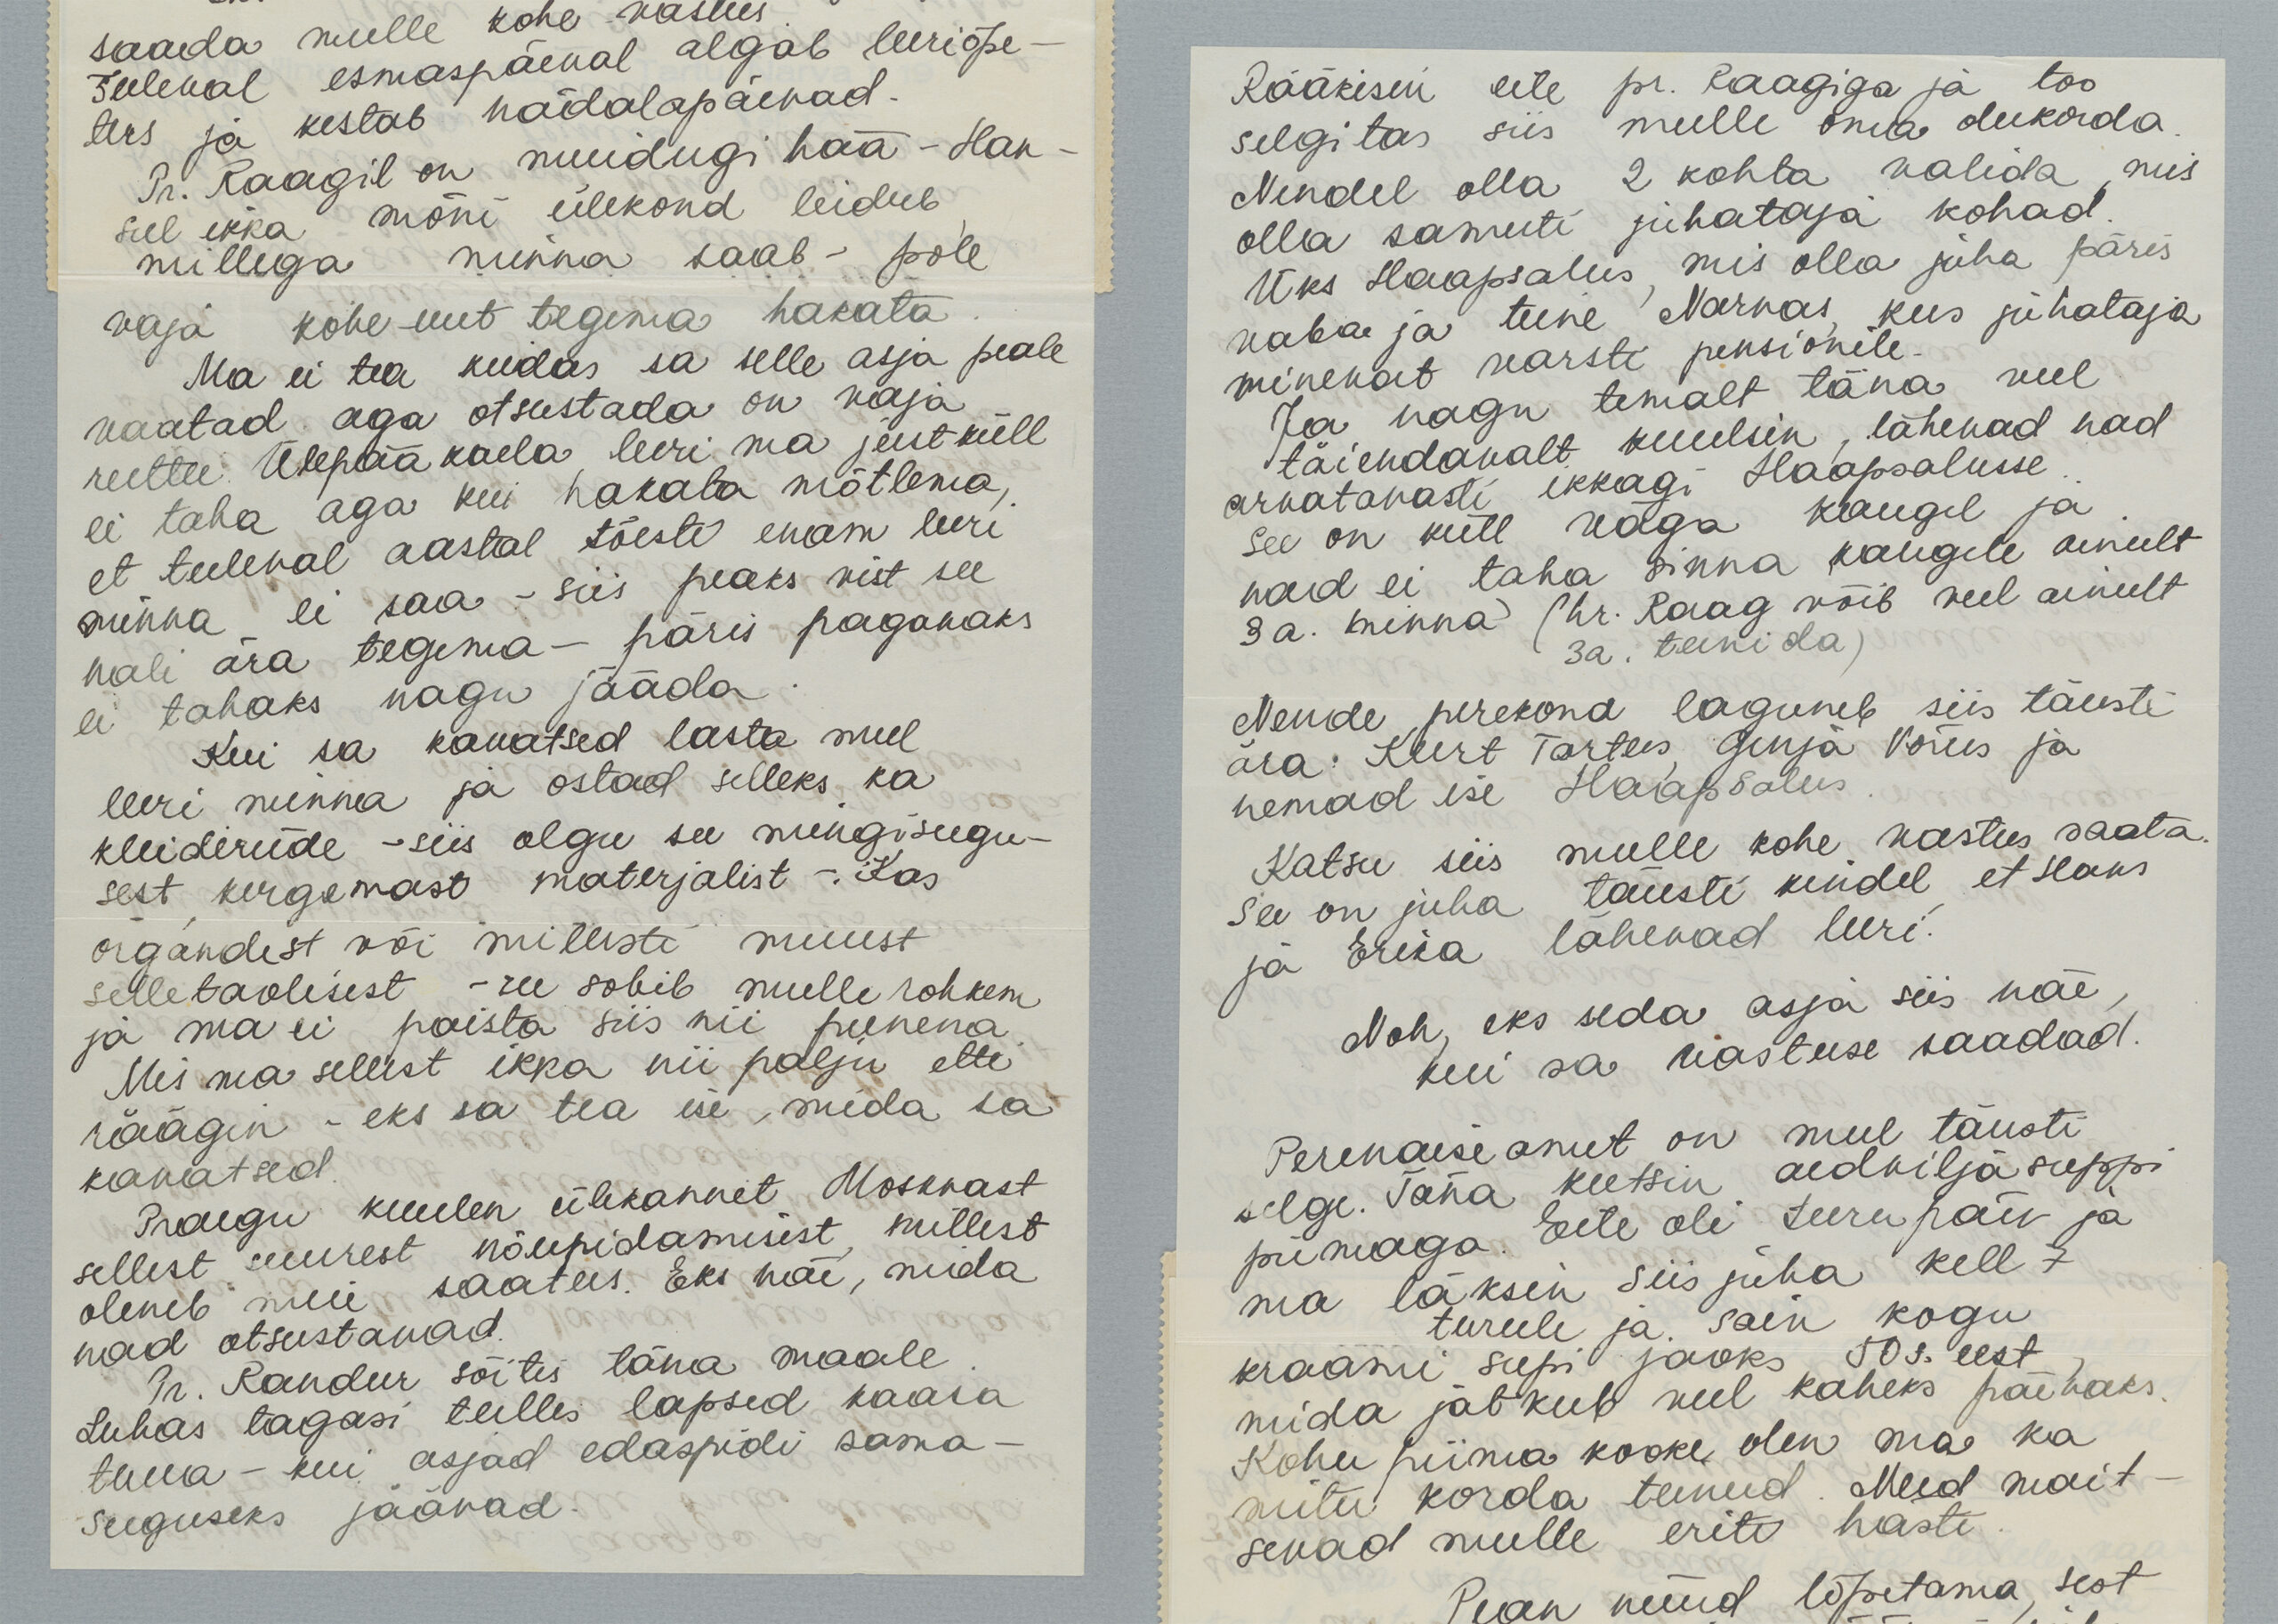 saada mulle kohe vastus
Tuleval esmaspäeval algab leeriõpe-
tus ja kestab nädalapäevad.
Pr. Raagil on muidugi hää - Han-
sul ikka mõni ülekond leidub,
millega minna saab - pole
vaja kohe uut tegema hakata.
Ma ei tea kuidas sa selle asja peale
vaatad aga otsustada on vaja
ruttu. Ülepää kaela leeri ma just küll
ei taha aga kui hakata mõtlema,
et tuleval aastal tõesti enam leeri
minna ei saa - siis peaks vist see
nali ära tegema - päris paganaks
ei tahaks nagu jääda.
Kui sa kavatsed lasta mul
leeri minna ja ostad selleks ka
kleidiriide - siis olgu see mingisugu-
sest kergemast materjalist -. Kas
organdest või millesti muust
selletaolisest - see sobib mulle rohkem
ja ma ei paista siis nii punena.
Mis ma sellest ikka nii palju ette
räägin - eks sa tea ise, mida sa
kavatsed.
Praegu kuulen ülekannet Moskvast
sellest suurest nõupidamisest, millest
oleneb meie saatus. Eks näe, mida
nad otsustavad.
Pr. Randur sõitis täna maale.
Lubas tagasi tulles lapsed kaasa
tuua - kui asjad edaspidi sama-
suguseks jäävad.
Rääkisin eile pr. Raagiga ja too
selgitas siis mulle oma olukorda.
Nendel olla 2 kohta valida, mis
olla samuti juhataja kohad.
Üks Haapsalus, mis olla juba päris
vaba ja teine Narvas, kus juhataja
minevat varsti pensionile.
Ja nagu temalt täna veel
täiendavalt kuulsin, lähevad nad
arvatavasti ikkagi Haapsalusse.
See on küll väga kaugel ja
nad ei taha sinna kaugele ainult
3 a. minna (hr. Raag võib veel ainult
3a. teenida)
Nende perekond laguneb siis täiesti
ära: Kurt Tartus, Genja Võrus ja
nemad ise Haapsalus.
Katsu siis mulle kohe vastus saata.
See on juba täiesti kindel, et Hans
ja Erika lähevad leeri.
Noh, eks seda asja siis näe,
kui sa vastuse saadad.
Perenaise amet on mul täiesti
selge. Täna keetsin aedviljasuppi
piimaga. Eile oli turupäev ja
ma läksin siis juba kell 7
turule ja sain kogu
kraami supi jaoks 50 s. eest,
mida jätkub veel kaheks päevaks.
Kohupiima kooke olen ma ka
mitu korda teinud. Need mait-
sevad mulle eriti hästi.
Pean nüüd lõpetama, sest